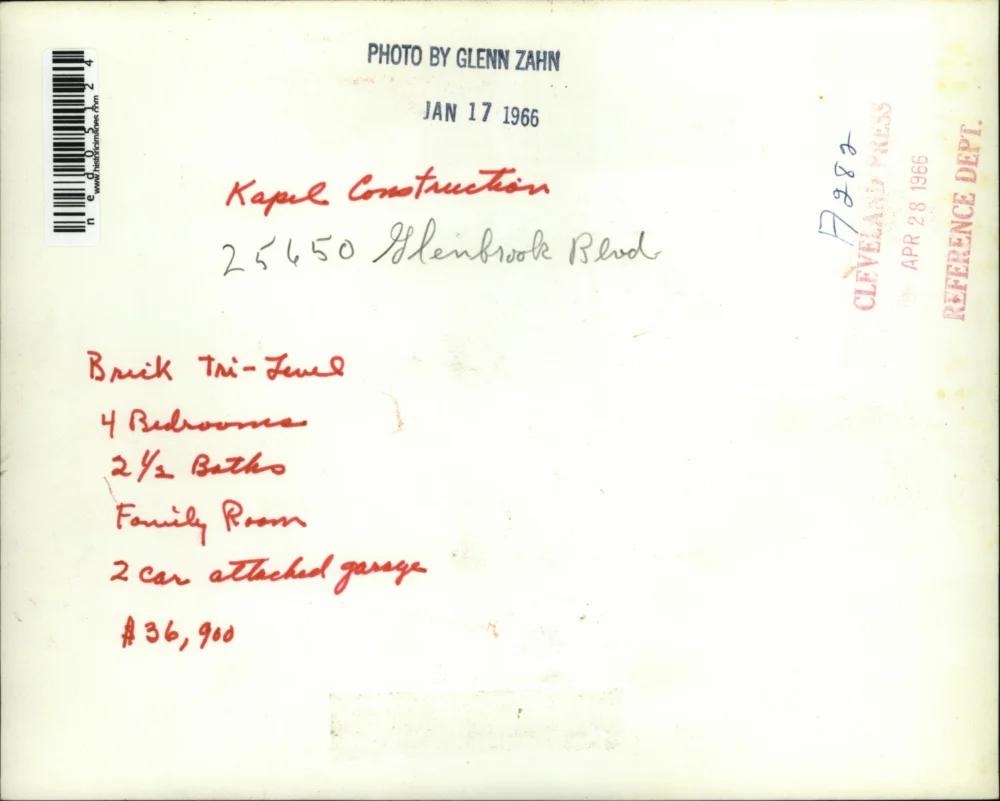 PHOTO BY GLENN ZAHN
JAN 17 1966
Kapel Construction
25650 Glenbrook Blvd
Brick Tri-Level
4 Bedrooms
2 1/2 Baths
Family Room
2 car attached garage
$36,900
CLEVELAND PRESS
APR 28 1966
REFERENCE DEPT.
ned05124